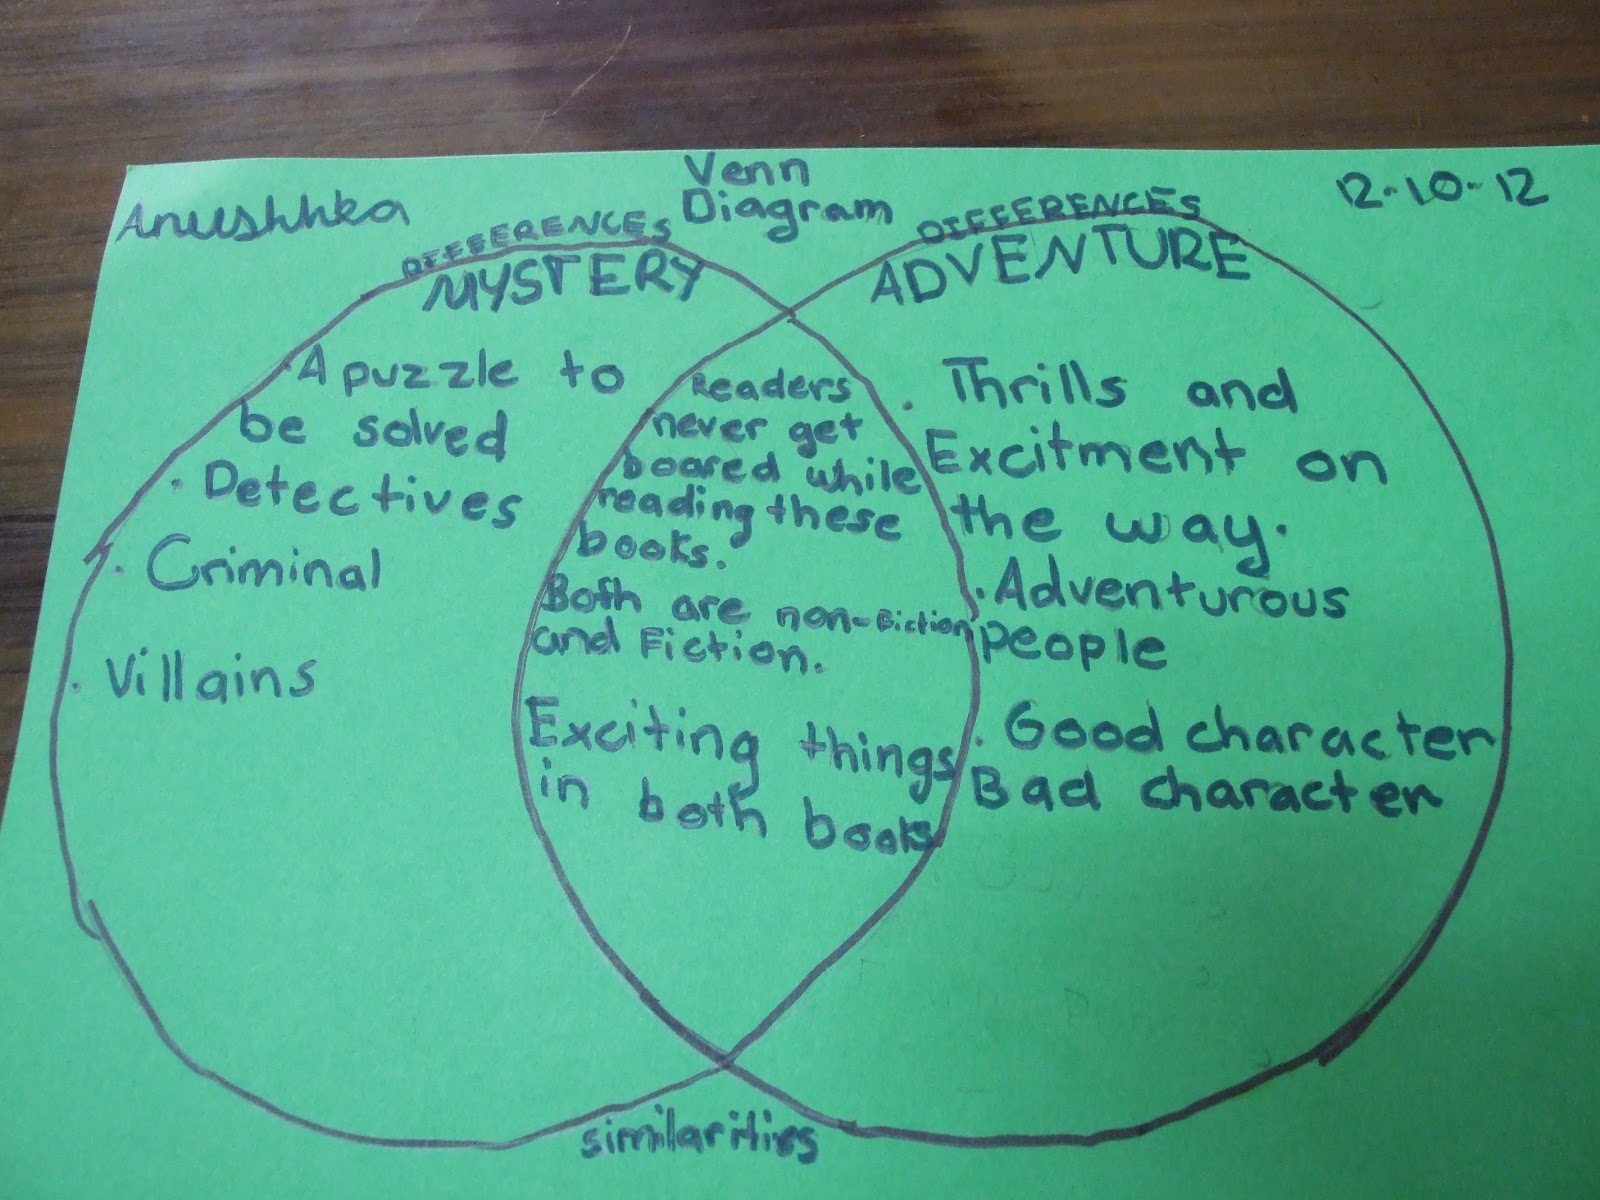 Venn
Diagram
Anushhka
12-10-12
DIFFERENCES
MYSTERY
· A puzzle to
be solved
· Detectives
· Criminal
· Villains
Readers
never get
boared while
reading these
books.
Both are non-fiction
and Fiction.
Exciting things
in both books
DIFFERENCES
ADVENTURE
· Thrills and
Excitment on
the way.
· Adventurous
people
· Good character
Bad character
similarities